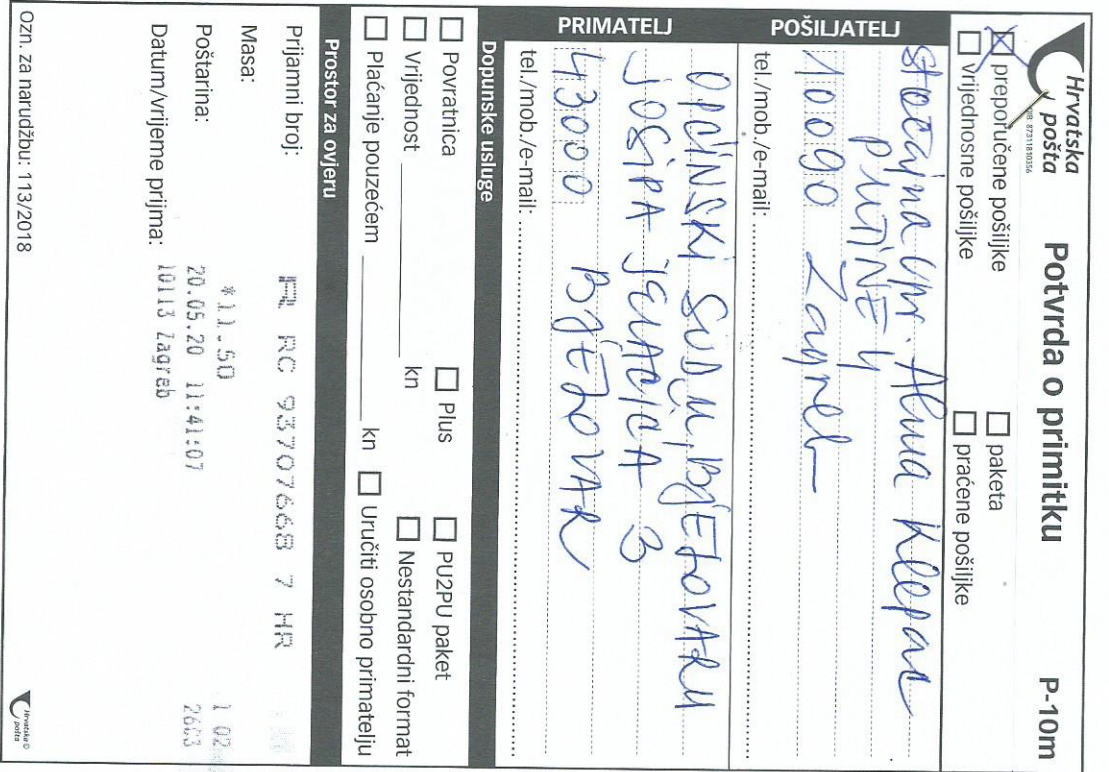 Hrvatska pošta
OIB: 87311810356
Potvrda o primitku P-10m
preporučene pošiljke
paketa
vrijednosne pošiljke
praćene pošiljke
POŠILJATELJ
Stečajna upr. Alma Klepac
10090 Zagreb
tel./mob./e-mail:
PRIMATELJ
OPĆINSKI SUD U BJELOVARU
JOSIPA JELAČIĆA 3
43000 BJELOVAR
tel./mob./e-mail:
Dopunske usluge
Povratnica
Plus
PU2PU paket
Vrijednost kn
Nestandardni format
Plaćanje pouzećem kn
Uručiti osobno primatelju
Prostor za ovjeru
Prijamni broj: RC 93707668 7 HR
Masa:
Poštarina: *11.50
Datum/vrijeme prijma: 20.05.20 11:41:07
10113 Zagreb
2603
Ozn. za narudžbu: 113/2018
Hrvatska pošta